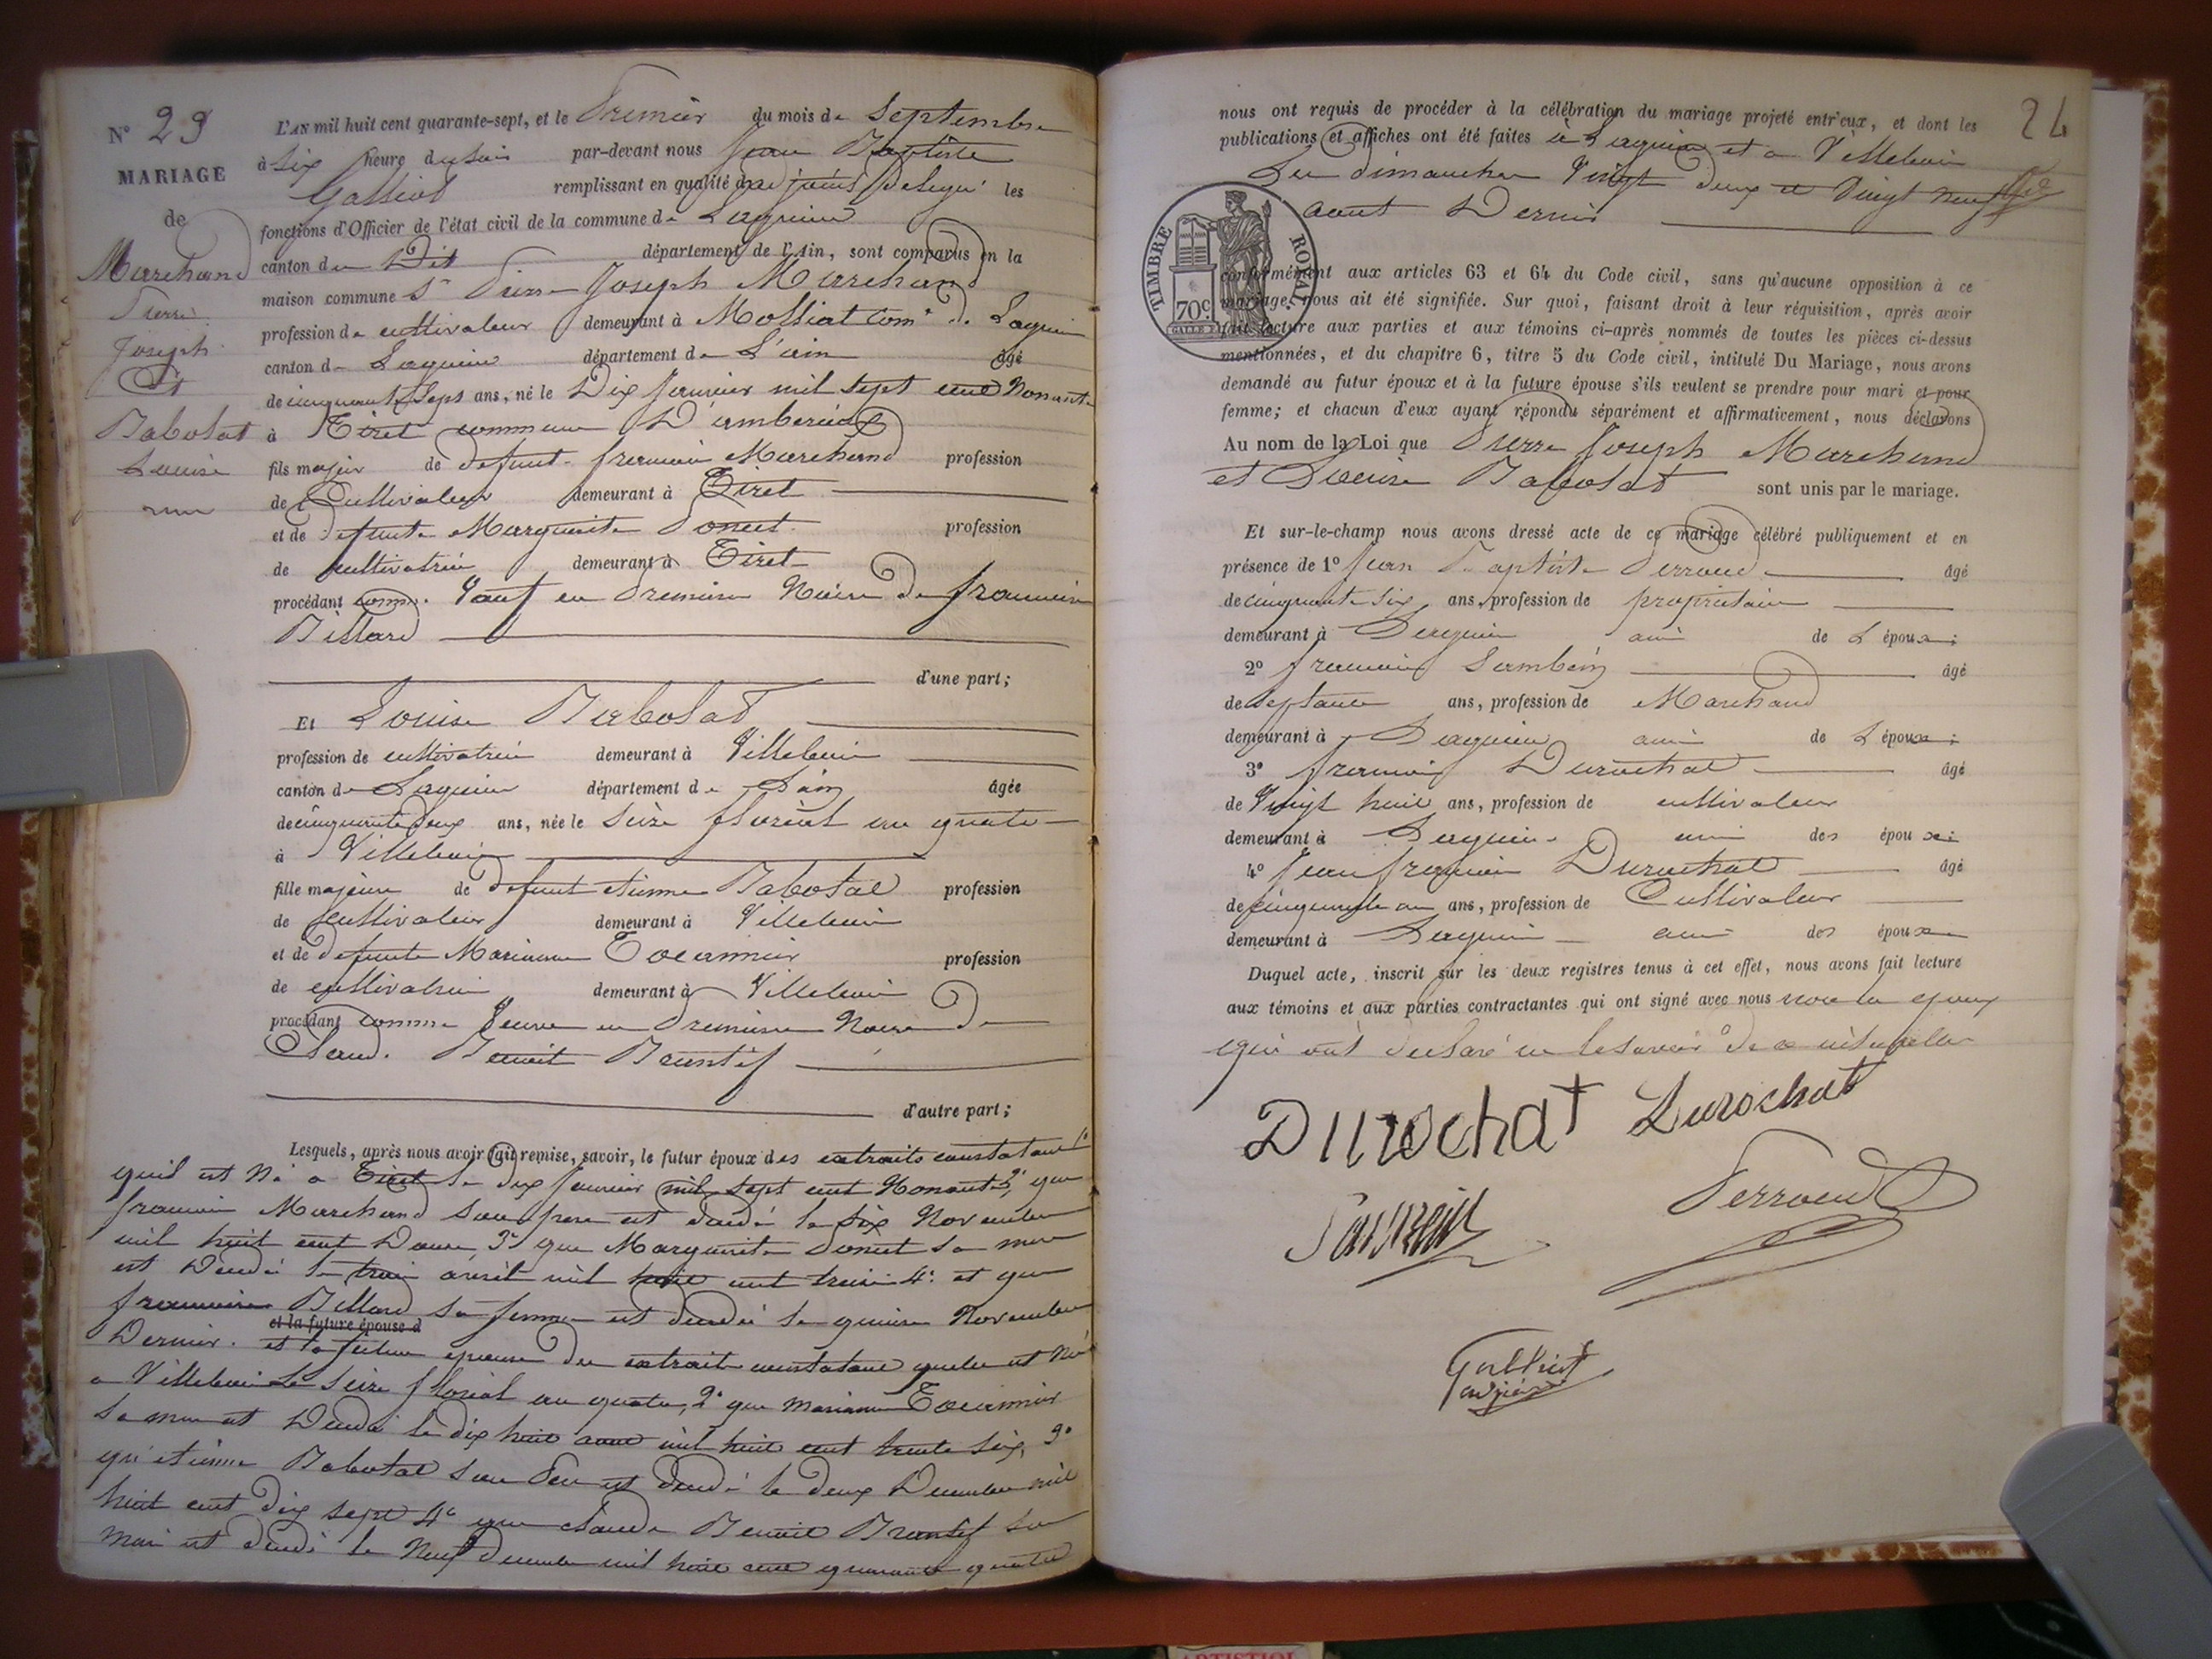 N° 29
MARIAGE
de
Marchand
Pierre
Joseph
Et
Babolat
Louise
L'AN mil huit cent quarante-sept, et le Premier du mois de Septembre
à six heure du soir par-devant nous Jean Baptiste
Galliot remplissant en qualité de les
fonctions d'Officier de l'état civil de la commune de Lagnieu
canton de Dit département de l'Ain, sont comparus en la
maison commune Sr Pierre Joseph Marchand
profession de cultivateur demeurant à Molliat Come de Lagnieu
canton de Lagnieu département de L'ain âgé
de cinquante Sept ans, né le Dix Janvier mil sept cent Nonante
à Tiret commune D'amberieux
fils majeur de defunt francois Marchand profession
de Cultivateur demeurant à Tiret
et de defunte Marguerite Poncet profession
de cultivatrice demeurant à Tiret
procédant comme Vauf en Premiere Noce De francoise
Billard
d'une part;
Et Louise Babolat
profession de cultivatrice demeurant à Villebois
canton de Lagnieu département de Lain âgée
de cinquante deux ans, née le Seize floréal an quatre
à Villebois
fille majeure de defunt etienne Babolat profession
de cultivateur demeurant à Villebois
et de defunte Marianne Tocannier profession
de cultivatrice demeurant à Villebois
procédant comme Veuve en Premiere Noce De
Claude Benoit Brunet
d'autre part;
Lesquels, après nous avoir fait remise, savoir, le futur époux des extraits constatant 1°
quil est Né a Tiret le dix Janvier mil sept cent Nonante, 2° que
francois Marchand son pere est décédé le six Novembre
mil huit cent Douze, 3° que Marguerite Poncet sa mere
est Décédé le trois avril mil huit cent treize 4° et que
francoise Billard sa femme est décédé le quinze Novembre
et la future épouse d
Dernier. et la future epouse des extraits constatant quelle est Né
a Villebois Le Seize floréal an quatre, 2° que Marianne Tocannier
sa mere est Décédé le dix huit aout mil huit cent trente six, 3°
qu'etienne Babolat son Pere est Décédé le deux Decembre mil
huit cent dix sept 4° que claude Benoit Brunet son
mari est décédé le Neuf decembre mil huit cent quarante quatre
24
nous ont requis de procéder à la célébration du mariage projeté entr'eux, et dont les
publications et affiches ont été faites à Lagnieu et a Villebois
Les dimanches Vingt deux et Vingt Neuf
aout Dernier
TIMBRE ROYAL
70c.
conformément aux articles 63 et 64 du Code civil, sans qu'aucune opposition à ce
mariage nous ait été signifiée. Sur quoi, faisant droit à leur réquisition, après avoir
fait lecture aux parties et aux témoins ci-après nommés de toutes les pièces ci-dessus
mentionnées, et du chapitre 6, titre 5 du Code civil, intitulé Du Mariage, nous avons
demandé au futur époux et à la future épouse s'ils veulent se prendre pour mari et pour
femme; et chacun d'eux ayant répondu séparément et affirmativement, nous déclarons
Au nom de la Loi que Pierre Joseph Marchand
et Louise Babolat sont unis par le mariage.
Et sur-le-champ nous avons dressé acte de ce mariage célébré publiquement et en
présence de 1° Jean Baptiste Perroud âgé
de cinquante six ans, profession de propriétaire
demeurant à Lagnieu ami de L époux;
2° francois âgé
de Septante ans, profession de Marchand
demeurant à Lagnieu ami de L époux;
3° francois Durochat âgé
de Vingt huit ans, profession de cultivateur
demeurant à Lagnieu ami des époux;
4° Jean francois Durochat âgé
de cinquante un ans, profession de Cultivateur
demeurant à Lagnieu ami des époux
Duquel acte, inscrit sur les deux registres tenus à cet effet, nous avons fait lecture
aux témoins et aux parties contractantes qui ont signé avec nous non les epoux
qui ont declaré ne le savoir de ce
Durochat Durochat
Perroud
Galliot